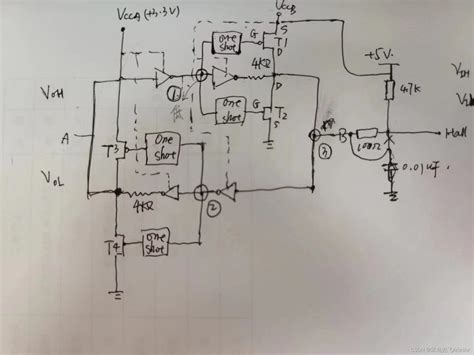 VCCA (+3.3V)
VCCB
S
G
T1
one
shot
D
4KΩ
+5V
VOH
①
one
shot
G
D
T2
S
47K
A
B
100Ω
Hall
③
T3
one
shot
VOL
4KΩ
②
0.01uF
T4
one
shot